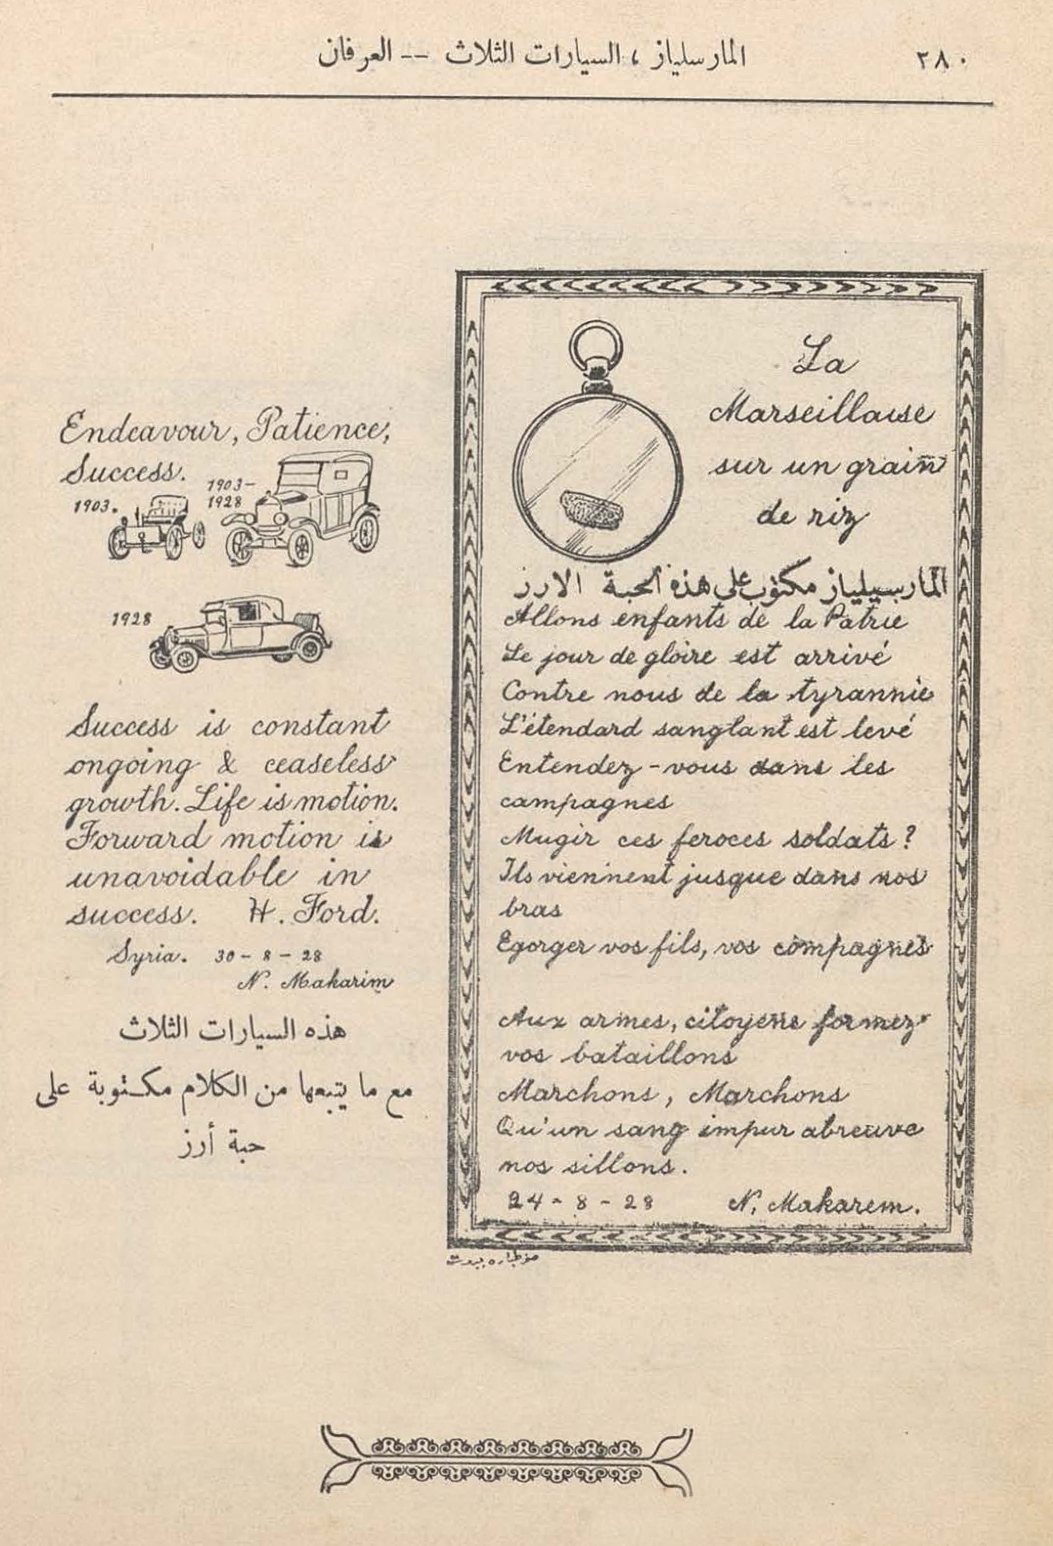 ٢٨٠
المارسلياز ، السيارات الثلاث -- العرفان
La
Marseillaise
sur un grain
de riz
المارسيلياز مكتوب على هذه الحبة الارز
Allons enfants de la Patrie
Le jour de gloire est arrivé
Contre nous de la tyrannie
L'étendard sanglant est levé
Entendez-vous dans les
campagnes
Mugir ces feroces soldats?
Ils viennent jusque dans nos
bras
Egorger vos fils, vos compagnes
Aux armes, citoyens formez
vos bataillons
Marchons, Marchons
Qu'un sang impur abreuve
nos sillons.
24-8-28 N. Makarem.
طباره بيروت
Endeavour, Patience,
Success.
1903.
1903-
1928
1928
Success is constant
ongoing & ceaseless
growth. Life is motion.
Forward motion is
unavoidable in
success. H. Ford.
Syria. 30-8-28
N. Makarim
هذه السيارات الثلاث
مع ما يتبعها من الكلام مكتوبة على
حبة أرز